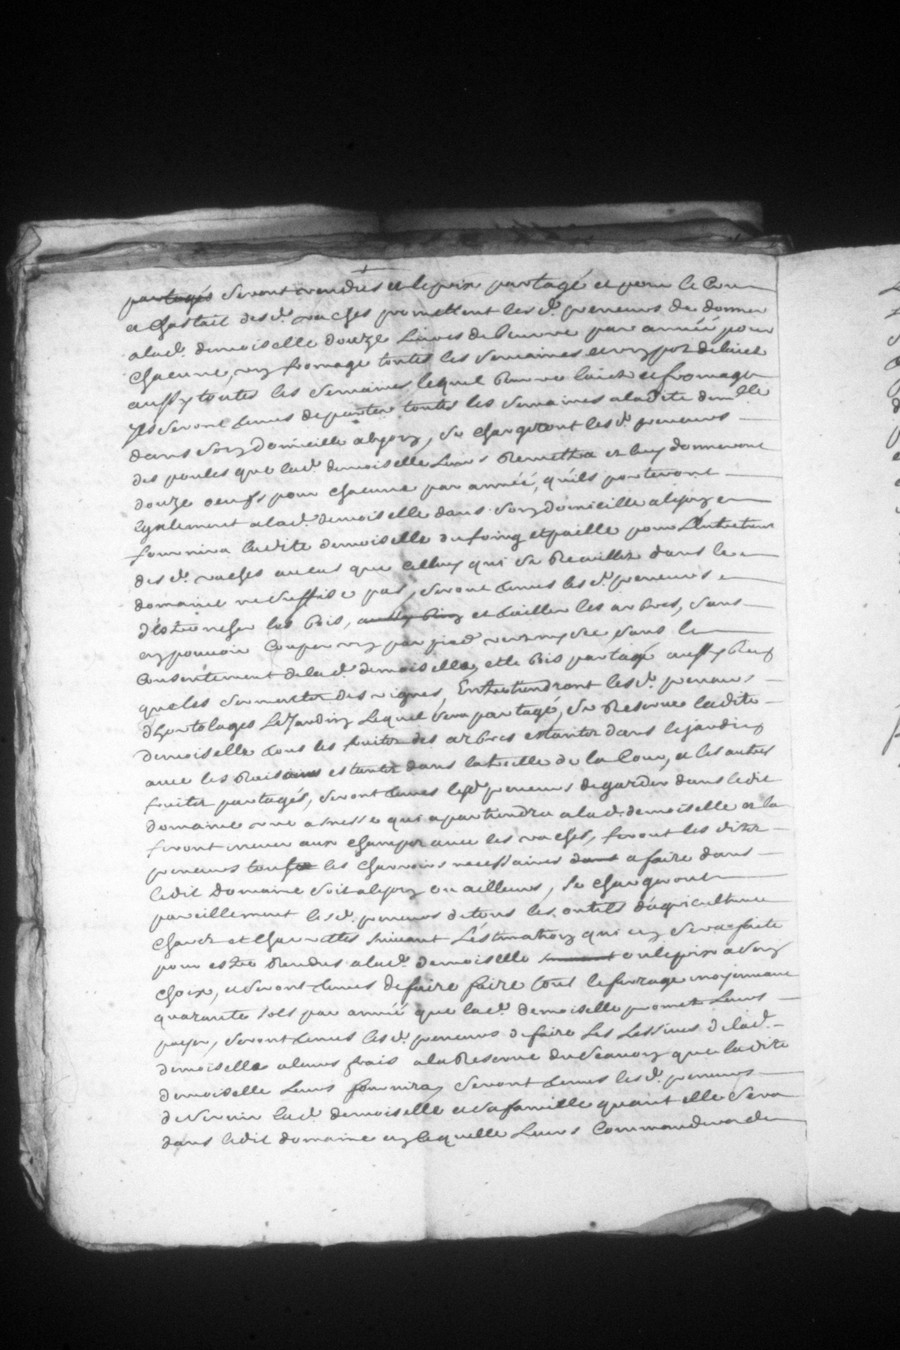 partagés seront vendus et le prix partagé et pour le
a Chastait desd. vaches promettent lesd. preneurs de donner
a lad. demoiselle douze Livres de beurre par année pour
Chacune, un fromage toutes les semaines et un pot de laict
aussy toutes les semaines lequel beurre laict et fromage
Ils seront tenus de porter toutes les semaines a ladite dem.lle
dans son domicille a lyon, se chargeront lesd. preneurs
des poules que lad. demoiselle Leurs Remettra et luy donneront
douze oeufs pour chacune par année, quils porteront
Egalement a lad. demoiselle dans son domicille a lyon
fournira ladite demoiselle du foing et paille pour L'entretien
desd. vaches au cas que celluy qui se Recueillit dans le
domaine ne suffise pas, seront tenus lesd. preneurs
d'esbrancher les bois, aussy bien et tailler les arbres, sans
en pouvoir Couper un par pied vert ny sec sans le
Consentement de lad. demoiselle, et le bois partagé aussy bien
que les serments des vignes, Entretiendront lesd. preneurs
d'hortolages Le Jardin Lequel sera partagé, se Reserve ladite
demoiselle tous les fruits des arbres estants dans le jardin
avec les Raisins estants dans la treille de la Cour, et les autres
fruits partagés, seront tenus lesd. preneurs de garder dans ledit
domaine une asnesse qui apartiendra a lad. demoiselle et la
feront mener aux champs avec les vaches, feront lesdits
preneurs tous les charrois necessaires dans a faire dans
ledit Domaine soit a lyon ou ailleurs, se chargeront
pareillement lesd. preneurs de tous les outils d'agriculture
Chars et Charrettes suivant L'estimation qui en sera faite
pour estre Rendus a lad. demoiselle ou le prix a son
choix, et seront tenus de faire faire tout le moyennant
quarante sols par année que lad. demoiselle promet Leurs
payer, seront tenus lesd. preneurs de faire Les Lessives de lad.
demoiselle a leurs frais a la Reserve du Savon que ladite
demoiselle Leurs fournira, seront tenus lesd. preneurs
de servir lad. demoiselle et sa famille quant elle sera
dans ledit domaine en ce quelle Leurs Commandera de